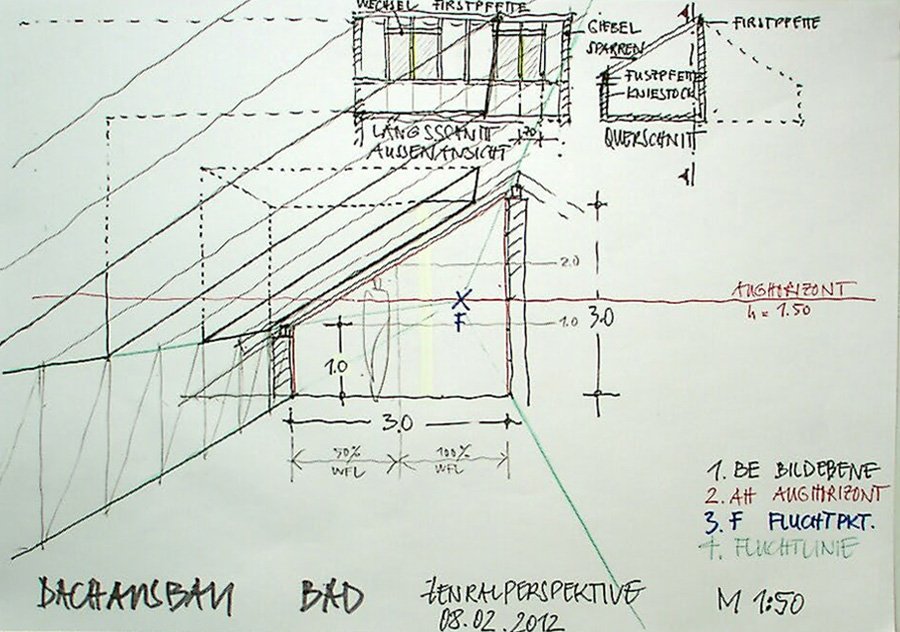 WECHSEL FIRSTPFETTE
GIEBEL
SPARREN
FIRSTPFETTE
FUSZPFETTE
KNIESTOCK
LÄNGSSCHNITT
AUSSENANSICHT
70
QUERSCHNITT
A
A
2.0
AUGHORIZONT
h = 1.50
F
1.0
3.0
1.0
3.0
50%
WFL
100%
WFL
1. BE BILDEBENE
2. AH AUGHORIZONT
3. F FLUCHTPKT.
4. FLUCHTLINIE
DACHAUSBAU BAD ZENRALPERSPEKTIVE
08.02.2012
M 1:50